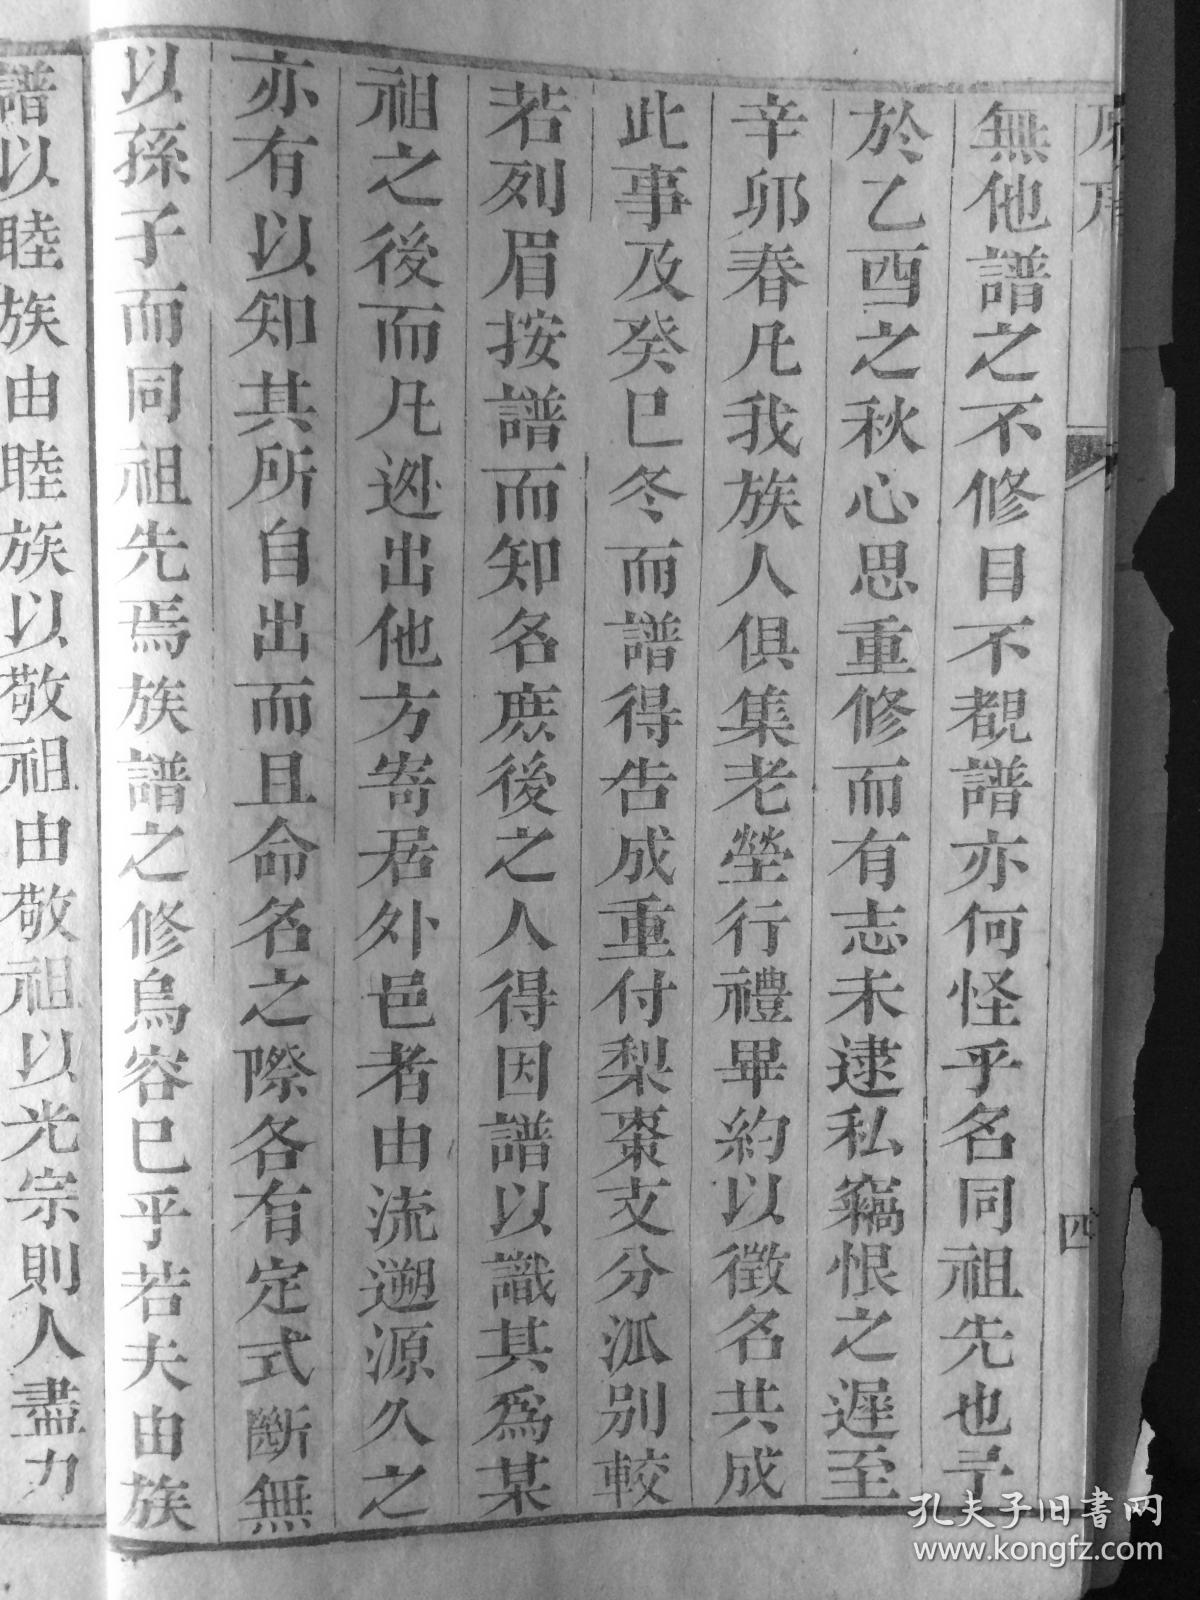 原序
四
無他譜之不修目不覩譜亦何怪乎名同祖先也予
於乙酉之秋心思重修而有志未逮私竊恨之遲至
辛卯春凡我族人俱集老塋行禮畢約以徵名共成
此事及癸巳冬而譜得告成重付梨棗支分派別較
若列眉按譜而知名庶後之人得因譜以識其為某
祖之後而凡逊出他方寄居外邑者由流遡源久之
亦有以知其所自出而且命名之際各有定式斷無
以孫子而同祖先焉族譜之修烏容已乎若夫由族
譜以睦族由睦族以敬祖由敬祖以光宗則人盡力
孔夫子旧書网
www.kongfz.com